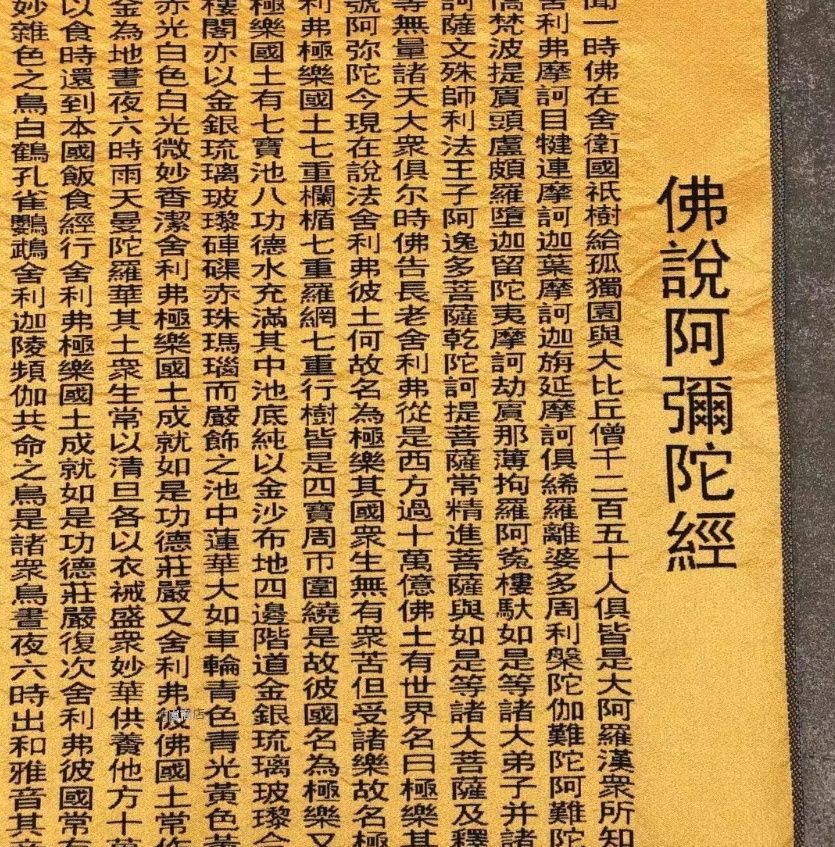 佛說阿彌陀經
聞一時佛在舍衛國祇樹給孤獨園與大比丘僧千二百五十人俱皆是大阿羅漢眾所知
舍利弗摩訶目犍連摩訶迦葉摩訶迦旃延摩訶俱絺羅離婆多周利槃陀伽難陀阿難陀
憍梵波提賓頭盧頗羅墮迦留陀夷摩訶劫賓那薄拘羅阿㝹樓馱如是等諸大弟子并諸
訶薩文殊師利法王子阿逸多菩薩乾陀訶提菩薩常精進菩薩與如是等諸大菩薩及釋
等無量諸天大眾俱尔時佛告長老舍利弗從是西方過十萬億佛土有世界名曰極樂其
號阿弥陀今現在說法舍利弗彼土何故名為極樂其國眾生無有眾苦但受諸樂故名極
利弗極樂國土七重欄楯七重羅網七重行樹皆是四寶周帀圍繞是故彼國名為極樂又
極樂國土有七寶池八功德水充滿其中池底純以金沙布地四邊階道金銀琉璃玻瓈合
樓閣亦以金銀琉璃玻瓈硨磲赤珠瑪瑙而嚴飾之池中蓮華大如車輪青色青光黃色黃
赤光白色白光微妙香潔舍利弗極樂國土成就如是功德莊嚴又舍利弗彼佛國土常作
金為地晝夜六時雨天曼陀羅華其土眾生常以清旦各以衣祴盛眾妙華供養他方十萬
以食時還到本國飯食經行舍利弗極樂國土成就如是功德莊嚴復次舍利弗彼國常有
妙雜色之鳥白鶴孔雀鸚鵡舍利迦陵頻伽共命之鳥是諸眾鳥晝夜六時出和雅音其音